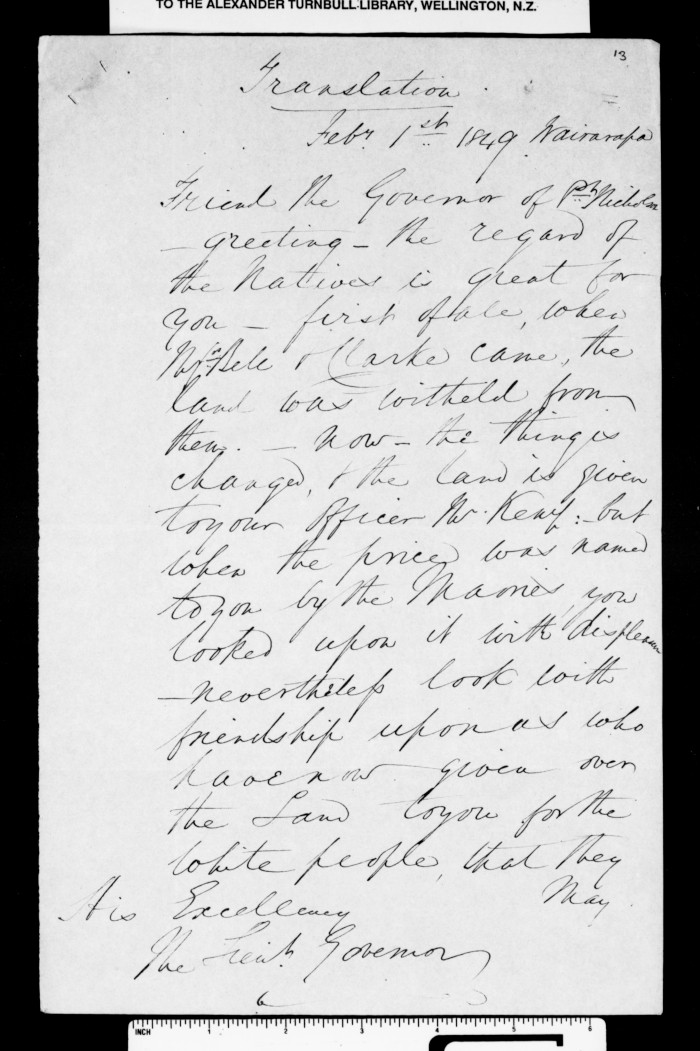 TO THE ALEXANDER TURNBULL LIBRARY, WELLINGTON, N.Z.
13
Translation
Feby 1st 1849 Wairarapa
Friend the Governor of Pt Nicholson
- greeting - the regard of
the Natives is great for
you - first of all, when
Mrs Bell & Clarke came, the
land was witheld from
them. - Now - the thing is
changed, & the land is given
to your Officer Mr. Kemp: - but
when the price was named
to you by the Maories, you
looked upon it with displeasure
- nevertheless look with
friendship upon us who
have now given over
the Land to you for the
white people, that they
May
His Excellency
The Lieut. Governor
INCH 1 2 3 4 5 6